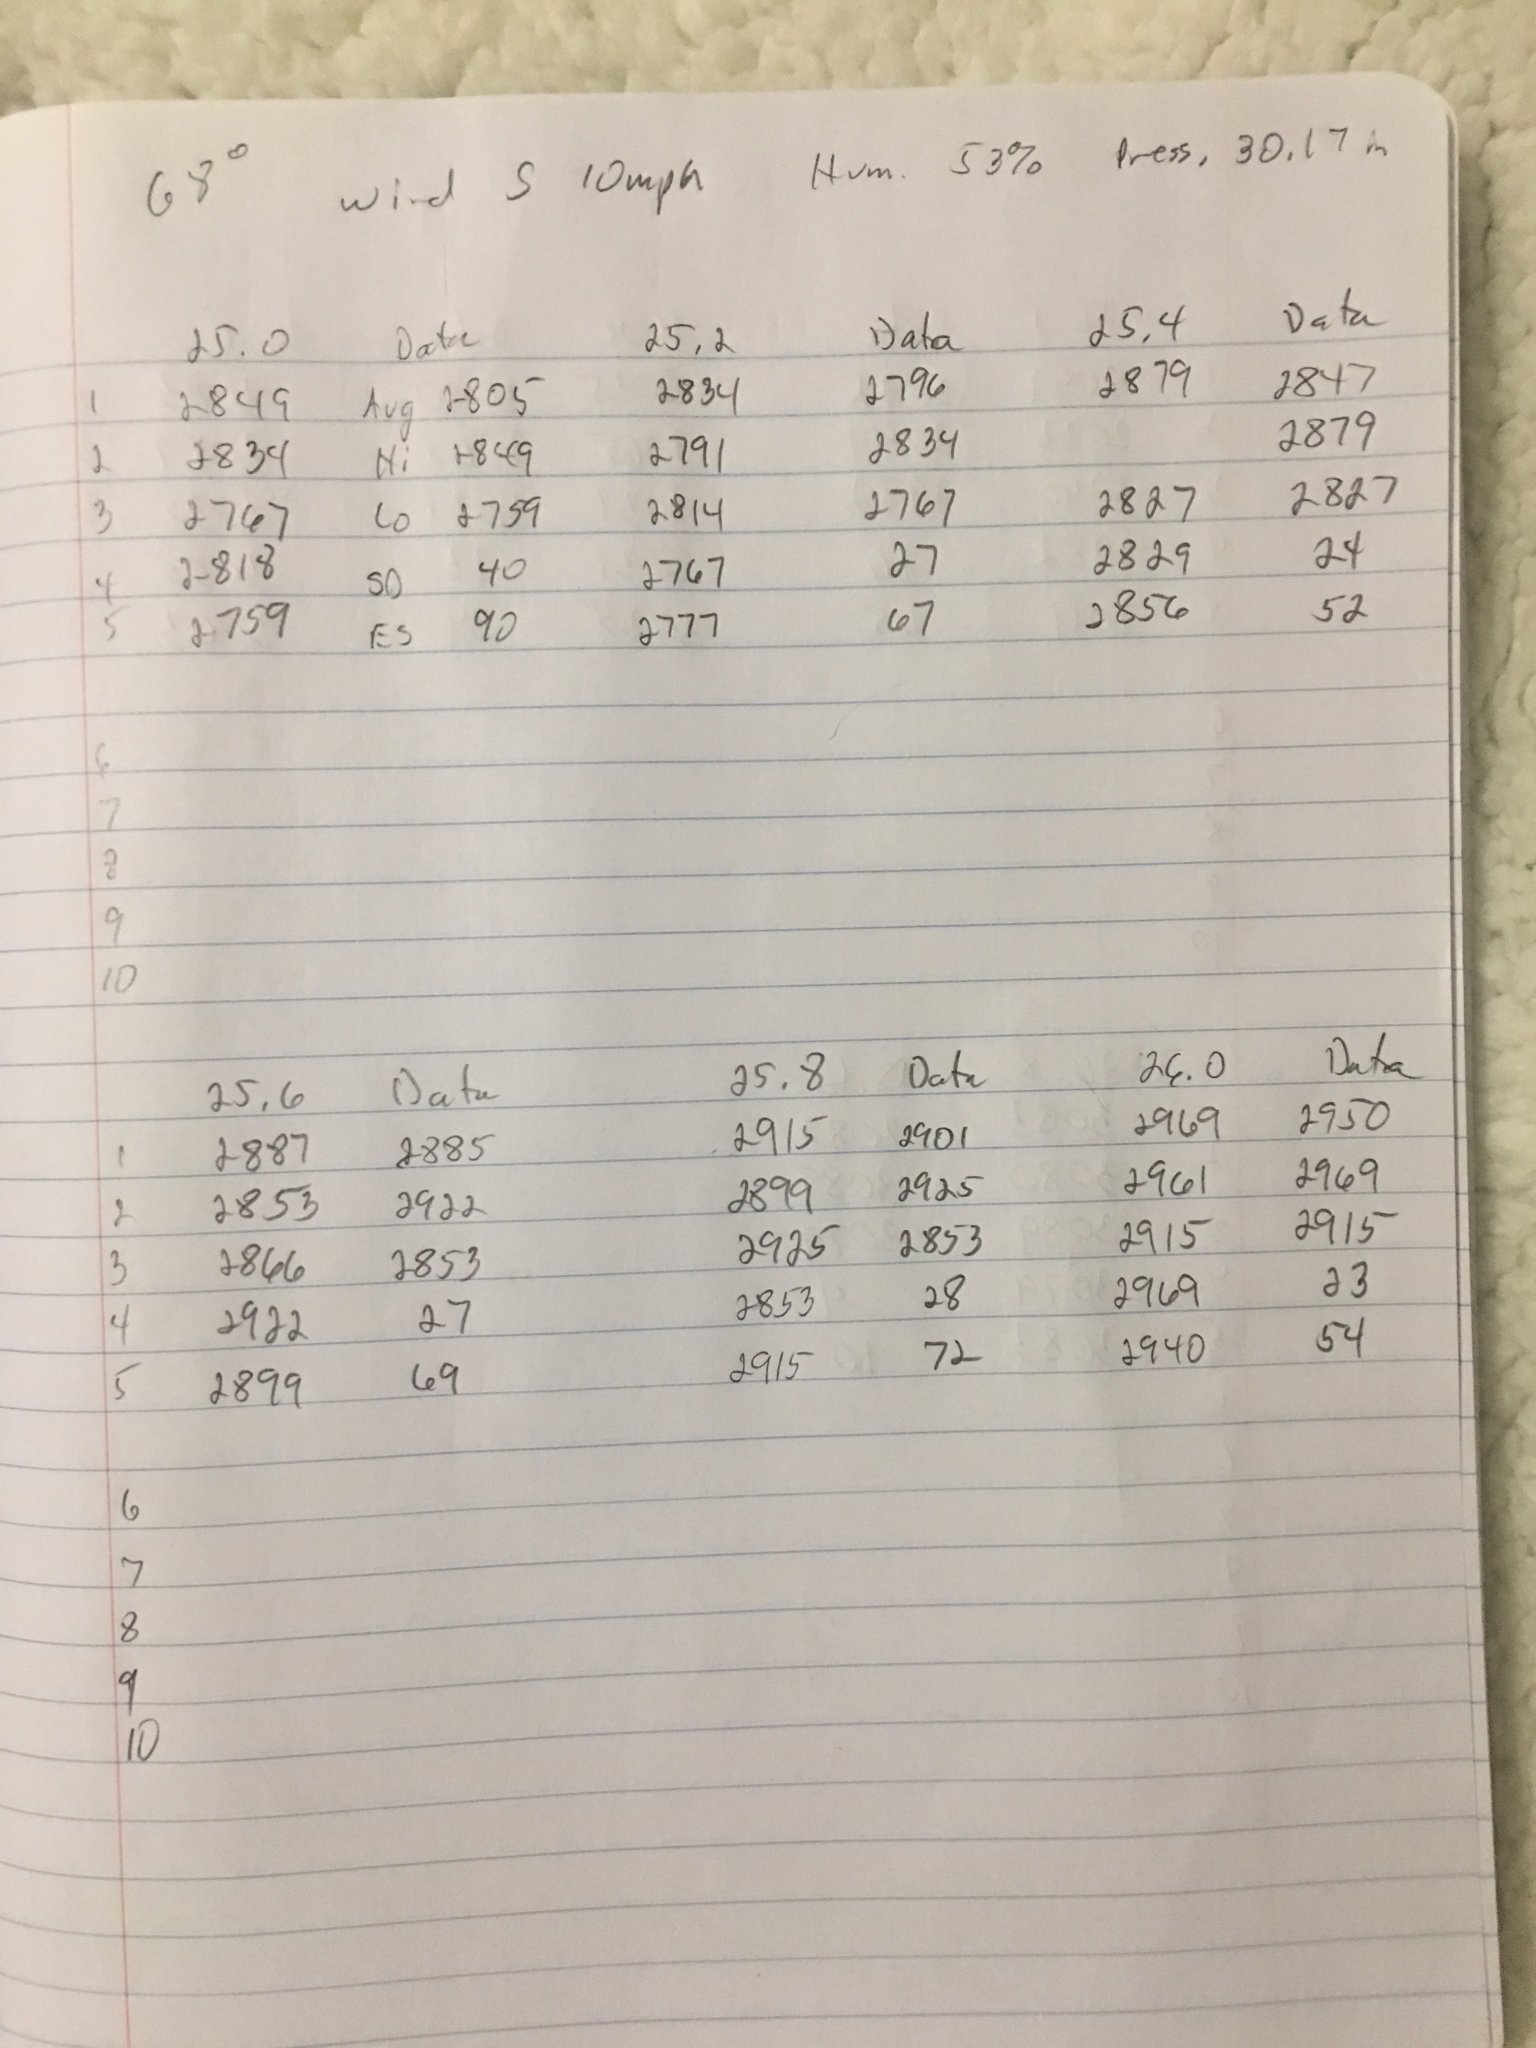 68° Wind S 10mph Hum. 53% Press. 30.17 in
25.0 Data 25.2 Data 25.4 Data
1 2849 Avg 2805 2834 2796 2879 2847
2 2834 Hi 2849 2791 2834 2879
3 2767 Lo 2759 2814 2767 2827 2827
4 2818 SD 40 2767 27 2829 24
5 2759 ES 90 2777 67 2856 52
6
7
8
9
10
25.6 Data 25.8 Data 26.0 Data
1 2887 2885 2915 2901 2969 2950
2 2853 2922 2899 2925 2961 2969
3 2866 2853 2925 2853 2915 2915
4 2922 27 2853 28 2969 23
5 2899 69 2915 72 2940 54
6
7
8
9
10